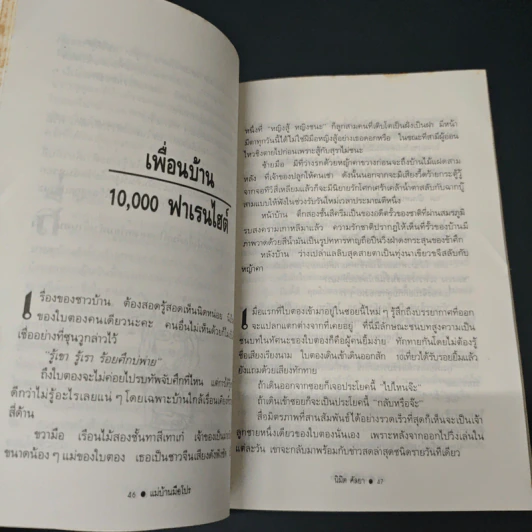 เพื่อนบ้าน
10,000 ฟาเรนไฮต์
เรื่องของชาวบ้าน ต้องสอดรู้สอดเห็นนิดหน่อย
ของใบตองคนเดียวนะคะ คนอื่นไม่เห็นด้วยก็
เชื่ออย่างที่ซุนวูกล่าวไว้
"รู้เขา รู้เรา ร้อยศึกบ่พ่าย"
ถึงใบตองจะไม่ค่อยไปรบทัพจับศึกที่ไหน
ดีกว่าไม่รู้อะไรเลยแน่ ๆ โดยเฉพาะบ้านใกล้เรือนเคียง
สี่ด้าน
ขวามือ เรือนไม้สองชั้นทาสีเทาเก่
ขนาดน้อง ๆ แม่ของใบตอง เธอเป็นชาวจีน
46 ● แม่บ้านมือโปร
หนึ่งที่ "หญิงสู้ หญิงชนะ" ก็ลูกสามคนที่เติบโตเป็นฝั่งเป็นฝา มีหน้า
มีตาทุกวันนี้ได้ไม่ใช่ฝีมือหญิงสู้อย่างเธอคอกหรือ ในขณะที่สามีผู้อ่อน
ไหวชิงตายไปก่อนเพราะสู้กับสุราไม่ชนะ
ซ้ายมือ มีที่ว่างรกด้วยหญ้าคาขวางก่อนจะถึงบ้านไม้แฝดสาม
หลัง ที่เจ้าของปลูกให้คนเช่า
จากจอทีวีสี่เหลี่ยมแล้วก็จะมีนิยายรักโศกเคร้าเคล้าน้ำตาสลับกับฉากบู๊
สามแบบให้ฟังในช่วงรับวันใหม่เวลาประมาณตีหนึ่ง
หน้าบ้าน ตึกสองชั้นสีครีมเป็นของอดีตรั้วของชาติที่ผ่านสมรภูมิ
รบสงครามเกาหลีมาแล้ว ความรักชาติปรากฏให้เห็นที่รั้วของบ้านมี
ภาพวาดด้วยสีน้ำมันเป็นรูปทหารหาญถือปืนวิ่งฝ่าดงกระสุนของข้าศึก
หลังบ้าน ว่างเปล่าแลลิบสุดสายตาเป็นทุ่งนาเขียวขจีสลับกับ
หญ้าคา
เมื่อแรกที่ใบตองเข้ามาอยู่ในซอยนี้ใหม่ ๆ รู้สึกถึงบรรยากาศที่ออก
จะแปลกแตกต่างจากที่เคยอยู่ ที่นี่มีลักษณะชนบทสูงความเป็น
ชนบทในทัศนะของใบตองก็คือผู้คนยิ้มง่าย ทักทายกันโดยไม่ต้องรู้
ชื่อเสียงเรียงนาม ใบตองเดินเข้าเดินออกสัก 10เที่ยวได้รับรอยยิ้มแล้ว
ยังแถมด้วยเสียงทักทาย
ถ้าเดินออกจากซอยก็เจอประโยคนี้ "ไปไหนจ๊ะ"
ถ้าเดินเข้าซอยก็จะเป็นประโยคนี้ "กลับหรือจ๊ะ"
สื่อมิตรภาพที่สานสัมพันธ์ได้อย่างรวดเร็วที่สุดก็เห็นจะเป็นเจ้า
ลูกชายหนึ่งเดียวของใบตองนั่นเอง เพราะหลังจากออกไปวิ่งเล่นใน
แต่ละวัน เขาจะกลับมาพร้อมกับข่าวสดล่าสุดชนิดรายวันทีเดียว
● 47